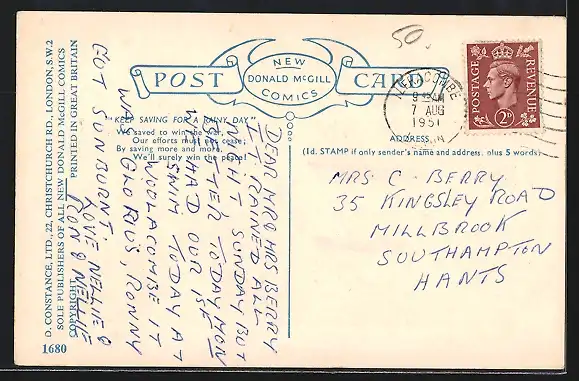 50.
NEW
POST DONALD McGILL CARD
COMICS
POSTAGE REVENUE
2D
COMBE
7 AUG
1951
"KEEP SAVING FOR A RAINY DAY"
We saved to win the war,
Our efforts must not cease;
By saving more and more,
We'll surely win the peace!
ADDRESS
(1d. STAMP if only sender's name and address, plus 5 words)
DEAR MR & MRS BERRY
IT RAINED ALL
NIGHT SUNDAY BUT
BETTER TODAY MON
WE HAD OUR 1ST
SWIM TODAY AT
WOOLACOMBE IT
WAS GLORUS, RONNY
GOT SUNBURNT.
LOVE NELLIE &
RON & NELLIE
MRS C. BERRY
35 KINGSLEY ROAD
MILLBROOK
SOUTHAMPTON
HANTS
D. CONSTANCE, LTD., 22, CHRISTCHURCH RD., LONDON, S.W.2
SOLE PUBLISHERS OF ALL NEW DONALD McGILL COMICS
COPYRIGHT PRINTED IN GREAT BRITAIN
1680